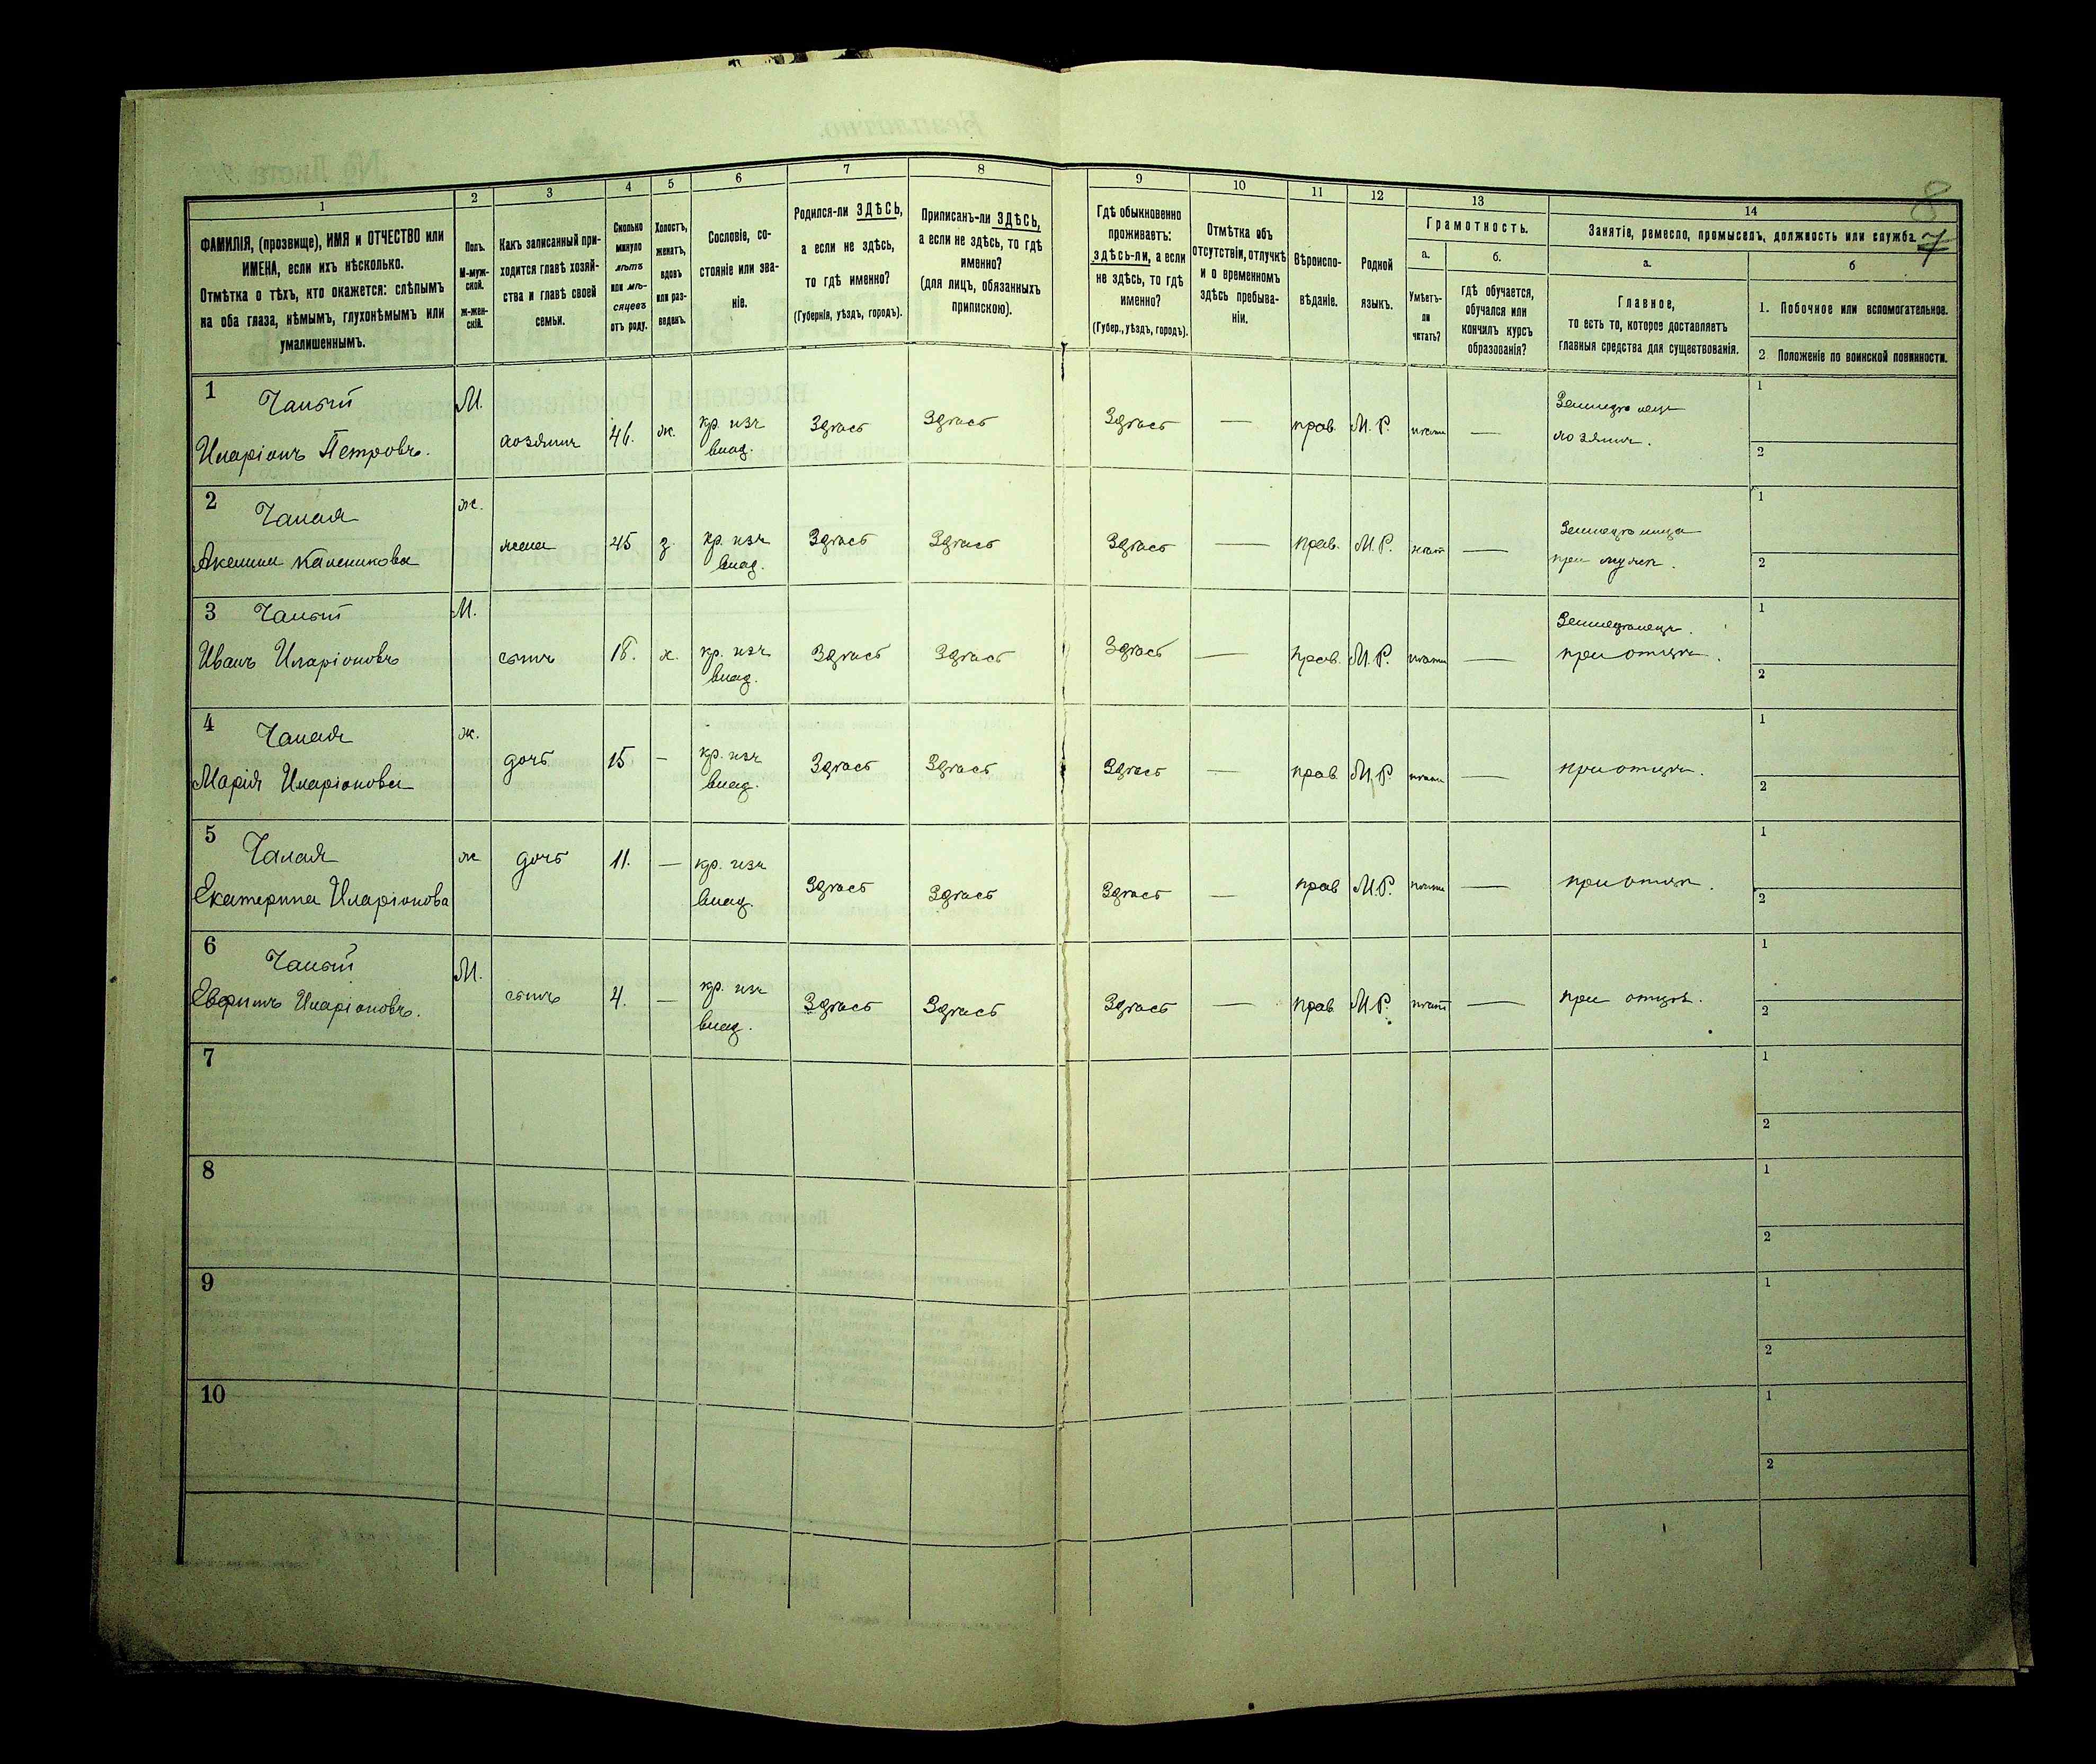 8
7
1
ФАМИЛІЯ, (прозвище), ИМЯ и ОТЧЕСТВО или
ИМЕНА, если ихъ нѣсколько.
Отмѣтка о тѣхъ, кто окажется: слѣпымъ
на оба глаза, нѣмымъ, глухонѣмымъ или
умалишеннымъ.
2
Полъ.
М-муж-
ской.
ж-жен-
скій.
3
Какъ записанный при-
ходится главѣ хозяй-
ства и главѣ своей
семьи.
4
Сколько
минуло
лѣтъ
или мѣ-
сяцевъ
отъ роду.
5
Холостъ,
женатъ,
вдовъ
или раз-
веденъ.
6
Сословіе, со-
стояніе или зва-
ніе.
7
Родился-ли ЗДѢСЬ,
а если не здѣсь,
то гдѣ именно?
(Губернія, уѣздъ, городъ).
8
Приписанъ-ли ЗДѢСЬ,
а если не здѣсь, то гдѣ
именно?
(для лицъ, обязанныхъ
припискою).
9
Гдѣ обыкновенно
проживаетъ:
здѣсь-ли, а если
не здѣсь, то гдѣ
именно?
(Губер., уѣздъ, городъ).
10
Отмѣтка объ
отсутствіи, отлучкѣ
и о временномъ
здѣсь пребыва-
ніи.
11
Вѣроиспо-
вѣданіе.
12
Родной
языкъ.
13
Грамотность.
а.
Умѣетъ-
ли
читать?
б.
гдѣ обучается,
обучался или
кончилъ курсъ
образованія?
14
Занятіе, ремесло, промыселъ, должность или служба.
а.
Главное,
то есть то, которое доставляетъ
главныя средства для существованія.
б
1. Побочное или вспомогательное.
2 Положеніе по воинской повинности.
1 Чалый М.
Иларіонъ Петровъ. хозяинъ 46. ж. кр. изъ влад. Здѣсь Здѣсь Здѣсь — прав. М. Р. — Земледѣлецъ
хозяинъ.
1
2
2 Чалая ж.
Акелина жена 45 з. кр. изъ влад. Здѣсь Здѣсь Здѣсь — прав. М. Р. нѣт — при мужѣ.
1
2
3 Чалый М.
Иванъ Иларіоновъ сынъ 18. х. кр. изъ влад. Здѣсь Здѣсь Здѣсь — прав. М. Р. — Земледѣлецъ.
при отцѣ.
1
2
4 Чалая ж.
Марія Иларіонова дочь 15 — кр. изъ влад. Здѣсь Здѣсь Здѣсь — прав М. Р — при отцѣ.
1
2
5 Чалая ж дочь 11. — кр. изъ
Екатерина Иларіонова влад. Здѣсь Здѣсь Здѣсь — прав М.Р. — при отцѣ.
1
2
6 Чалый М.
Иларіоновъ. сынъ 4. — кр. изъ влад. Здѣсь Здѣсь Здѣсь — прав М.Р. нѣтъ — при отцѣ.
1
2
7
1
2
8
1
2
9
1
2
10
1
2